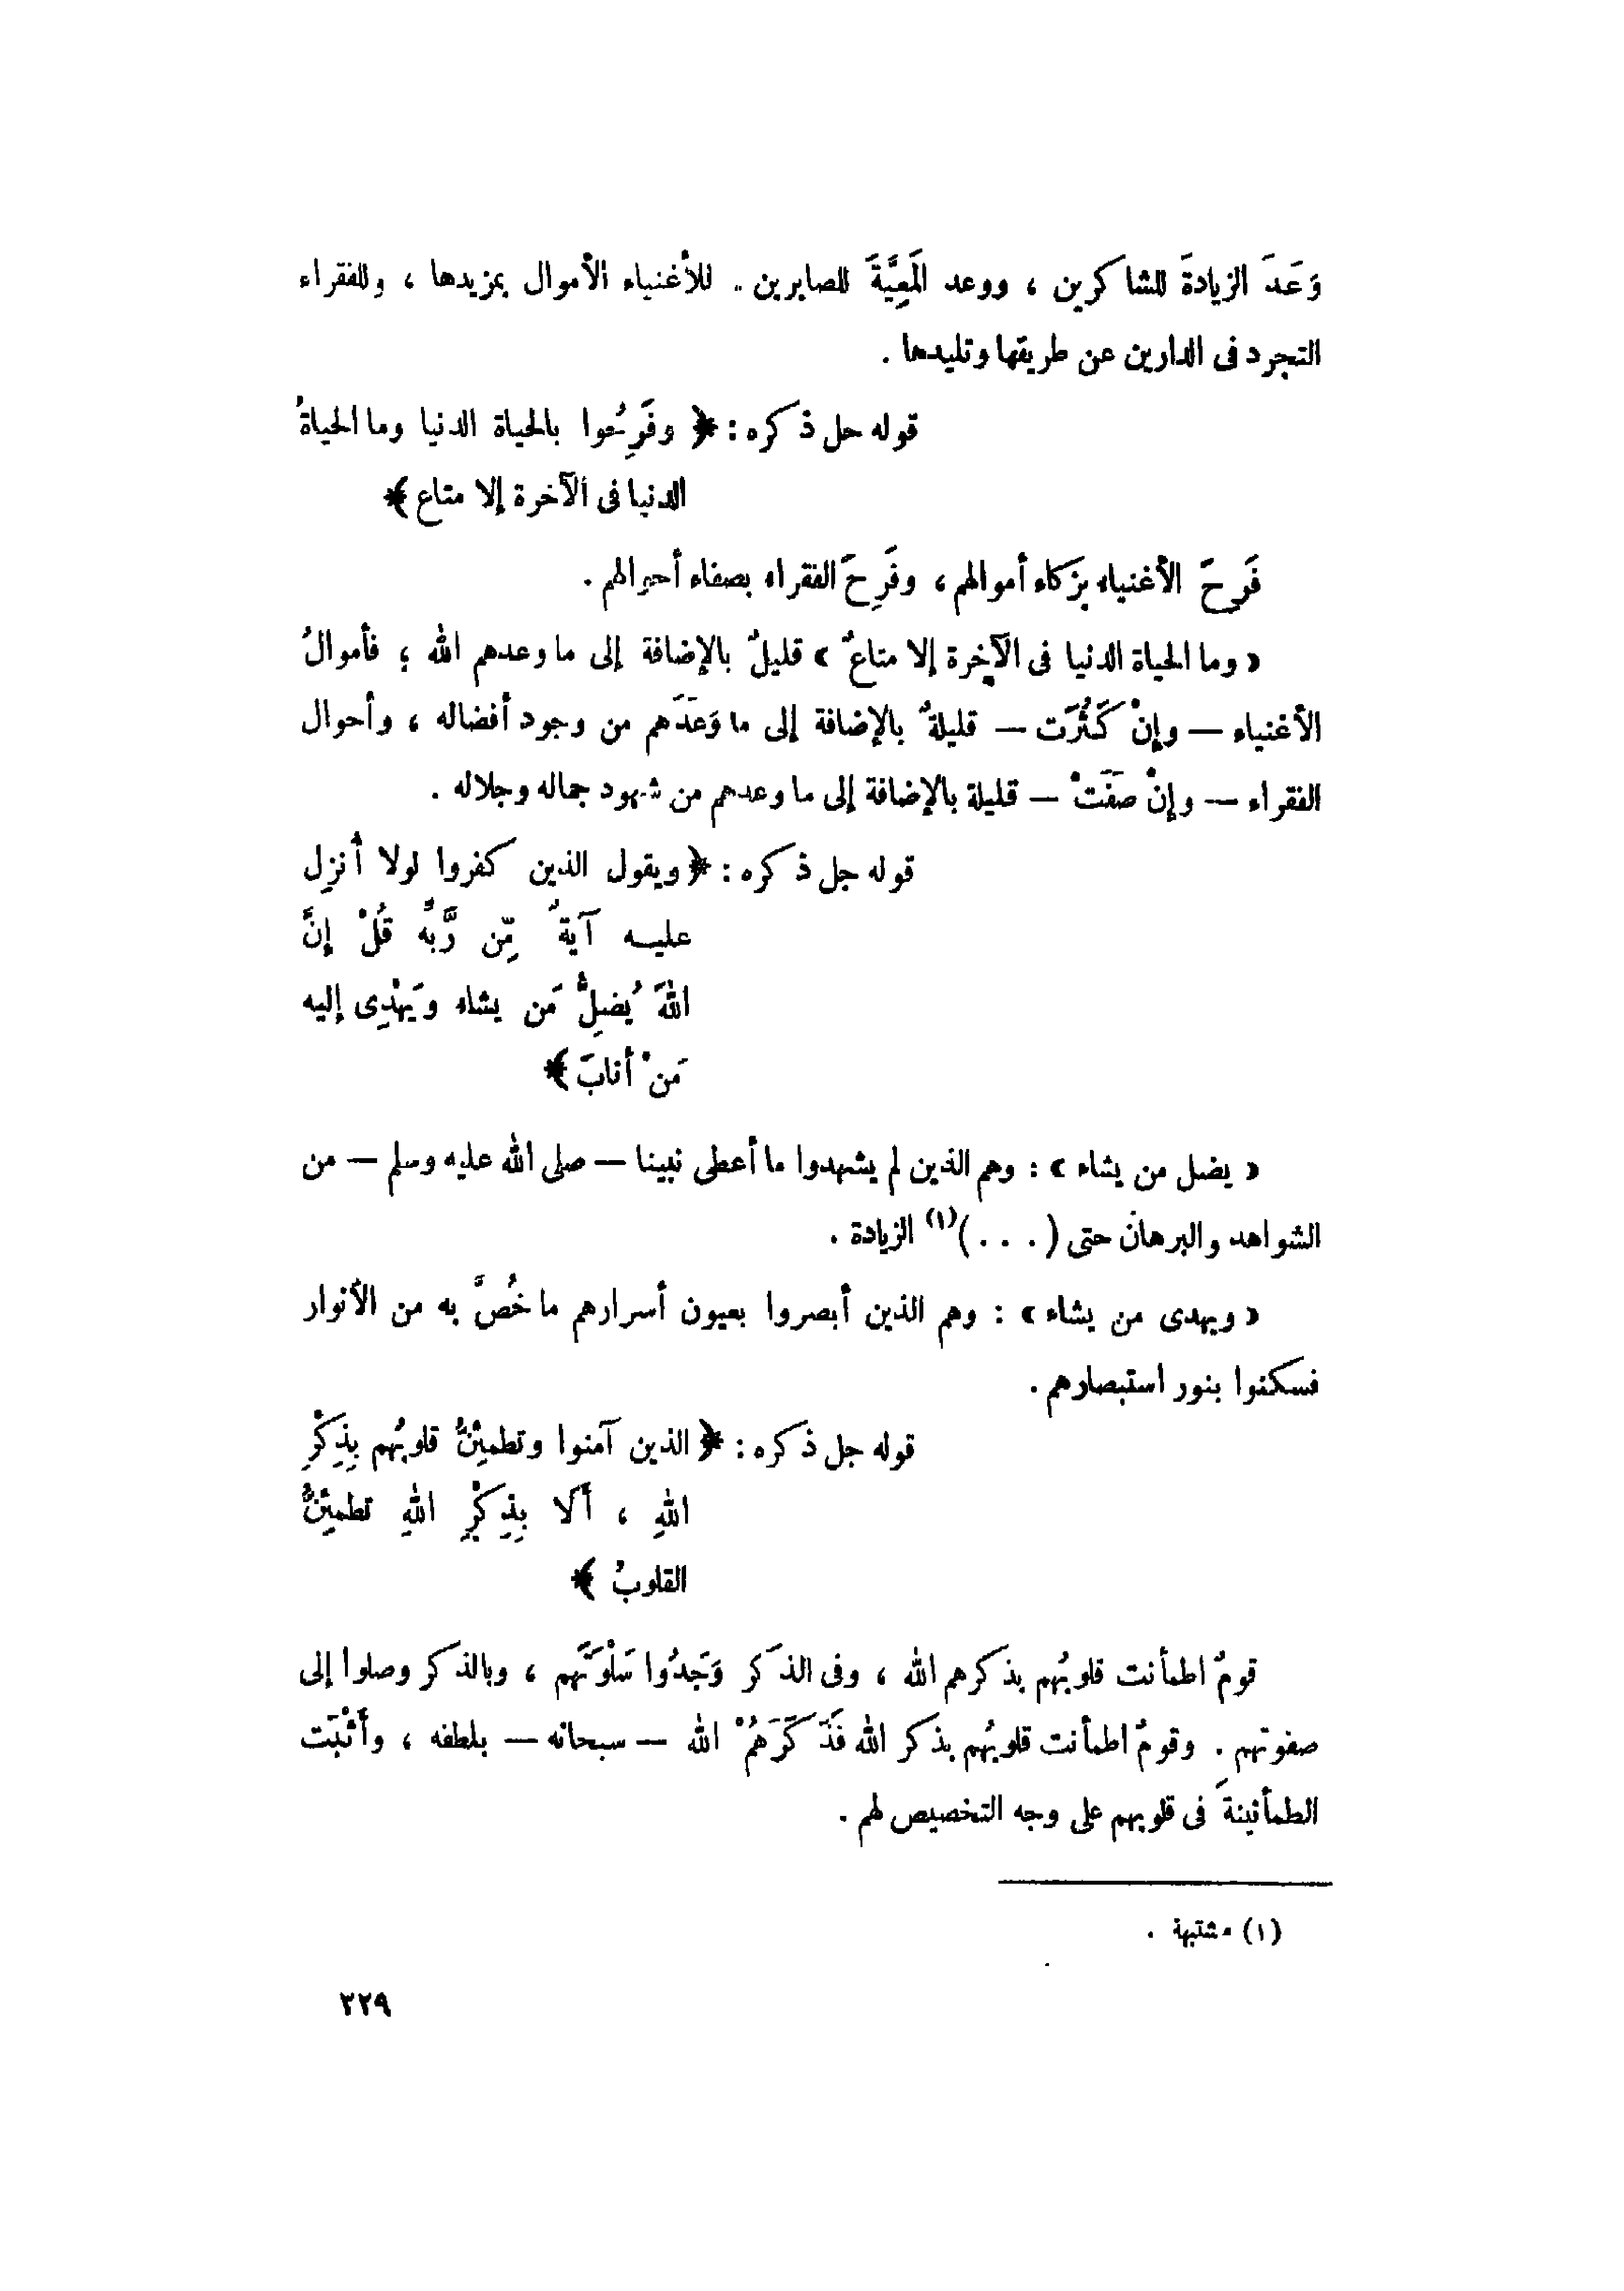 وَعَدَ الزيادةَ للشاكرين ، ووعد المَعِيَّةَ للصابرين .. للأغنياء الأموال بمزيدها ، وللفقراء
التجرد فى الدارين عن طريقها وتليدها .
قوله جل ذكره : ﴿ وفَرِحُوا بالحياة الدنيا وما الحياةُ
الدنيا فى الآخرة إلا متاع ﴾
فَرِحَ الأغنياء بزكاء أموالهم ، وفَرِحَ الفقراء بصفاء أحوالهم .
« وما الحياة الدنيا فى الآخِرة إلا متاعٌ » قليلٌ بالإضافة إلى ما وعدهم الله ؛ فأموالُ
الأغنياء — وإنْ كَثُرَت — قليلةٌ بالإضافة إلى ما وَعَدَهم من وجود أفضاله ، وأحوال
الفقراء — وإنْ صَفَتْ — قليلة بالإضافة إلى ما وعدهم من شهود جماله وجلاله .
قوله جل ذكره : ﴿ ويقول الذين كفروا لولا أُنزِل
عليه آيةٌ مِّن رَّبِّه قُلْ إنَّ
اللهَ يُضِلُّ مَن يشاء ويَهْدِى إليه
مَنْ أنابَ ﴾
« يضل من يشاء » : وهم الذين لم يشهدوا ما أعطى نبينا — صلى الله عليه وسلم — من
الشواهد والبرهان حتى ( . . . )(١) الزيادة .
« ويهدى من يشاء » : وهم الذين أبصروا بعيون أسرارهم ما خُصَّ به من الأنوار
فسكنوا بنور استبصارهم .
قوله جل ذكره : ﴿ الذين آمنوا وتطمئِنُّ قلوبُهم بِذِكْرِ
اللهِ ، أَلَا بِذِكْرِ اللهِ تطمئِنُّ
القلوبُ ﴾
قومٌ اطمأنت قلوبُهم بذكرهم الله ، وفى الذكر وَجَدُوا سَلْوَتَهم ، وبالذكر وصلوا إلى
صفوتهم . وقومٌ اطمأنت قلوبُهم بذكر الله فَذَكَرَهُمْ الله — سبحانه — بلطفه ، وأَثْبَت
الطمأنينةَ فى قلوبهم على وجه التخصيص لهم .
(١) مشتبهة .
٢٢٩